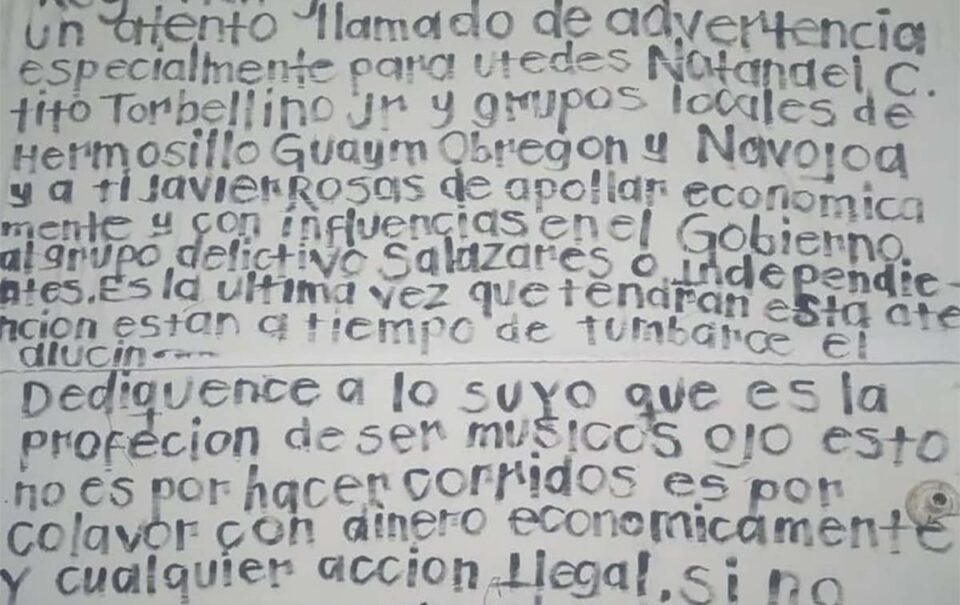 un atento llamado de advertencia
especialmente para utedes Natanael C.
tito Torbellino Jr y grupos locales de
Hermosillo Guaym Obregon y Navojoa
y a ti Javier Rosas de apollar economica
mente y con influencias en el Gobierno.
al grupo delictivo Salazares o independie-
ntes. Es la ultima vez que tendran esta ate
ncion estan a tiempo de tumbarce el
alucin
Dediquence a lo suyo que es la
profecion de ser musicos ojo esto
no es por hacer corridos es por
colavor con dinero economicamente
y cualquier accion Ilegal. si no